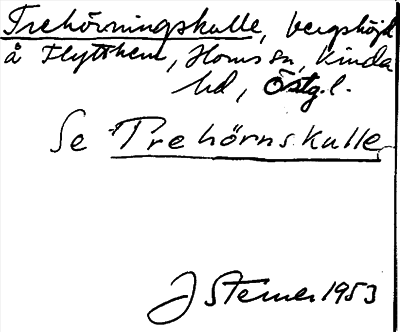 Trehörningskulle, bergshöjd
å Flytthem, Horns sn, Kinda
hd, Östg.l.
Se Trehörnskulle
J Sterner 1953